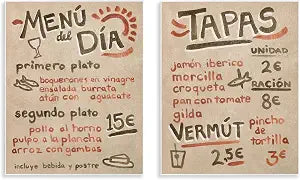 MENÚ
del DÍA
primero plato
boquerones en vinagre
ensalada burrata
atún con aguacate
segundo plato
pollo al horno
pulpo a la plancha
arroz con gambas
15€
incluye bebida y postre
TAPAS
jamón iberico
morcilla
croqueta
pan con tomate
gilda
UNIDAD
2€
RACIÓN
8€
VERMÚT
2,5€
pincho
de
tortilla
3€